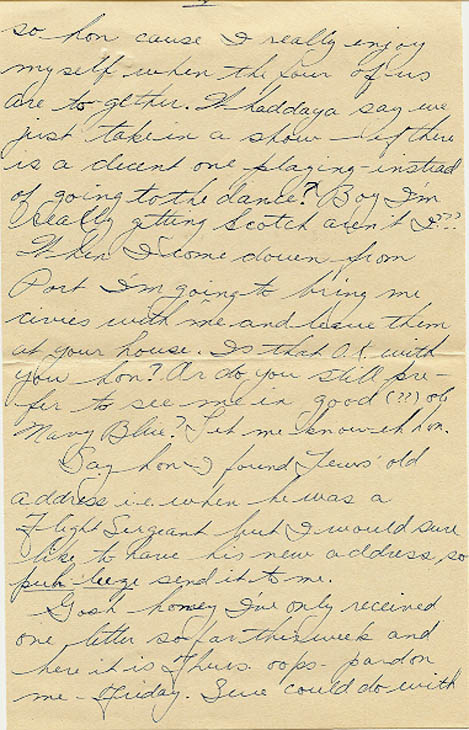 so hon cause I really enjoy
myself when the four of us
are to-gether. Whaddaya say we
just take in a show - if there
is a decent one playing - instead
of going to the dance? Boy I'm
really getting Scotch aren't I???
When I come down from
Port I'm going to bring me
civies with me and leave them
at your house. Is that O.K. with
you hon? Or do you still pre-
fer to see me in good (??) ole
Navy Blue? Let me know eh hon.
Say hon - I found Lews' old
address i.e. when he was a
Flight Sergeant but I would sure
like to have his new address, so
puh-leeze send it to me.
Gosh honey I've only received
one letter so far this week and
here it is Thurs. oops - pardon
me - Friday. Sure could do with